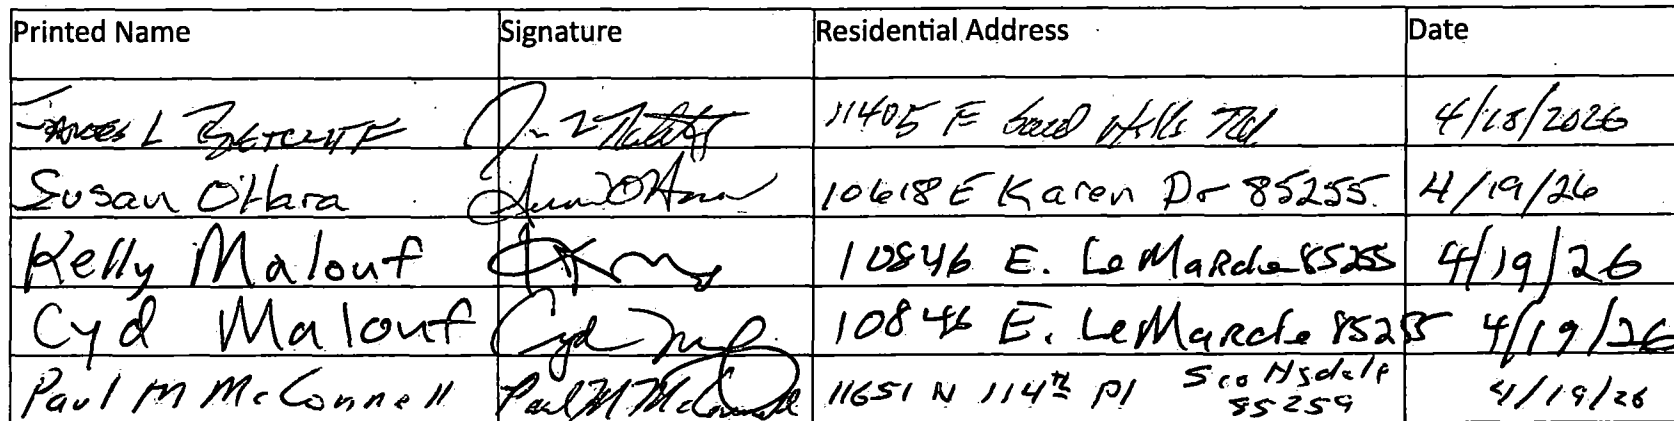 Printed Name Signature Residential Address Date
James L Ratcliff 11405 E Gold Hills Rd 4/18/2026
Susan O'Hara Susan O'Hara 10618 E Karen Dr 85255 4/19/26
Kelly Malouf 10846 E. LeMarche 85255 4/19/26
Cyd Malouf Cyd 10846 E. LeMarche 85255 4/19/26
Paul M McConnell Paul M McConnell 11651 N 114th Pl Scottsdale 85259 4/19/26